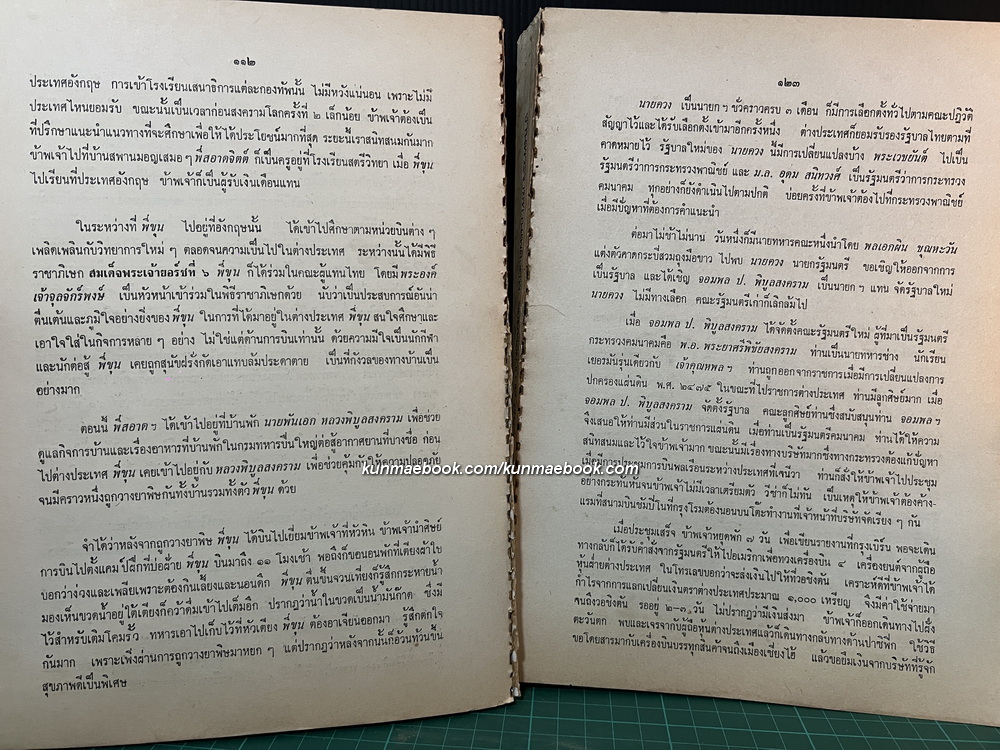 ๑๑๒
ประเทศอังกฤษ การเข้าโรงเรียนเสนาธิการแต่ละกองทัพนั้น ไม่มีหวังแน่นอน เพราะไม่มี
ประเทศไหนยอมรับ ขณะนั้นเป็นเวลาก่อนสงครามโลกครั้งที่ ๒ เล็กน้อย ข้าพเจ้าต้องเป็น
ที่ปรึกษาแนะนำแนวทางที่จะศึกษาเพื่อให้ได้ประโยชน์มากที่สุด ระยะนี้เราสนิทสนมกันมาก
ข้าพเจ้าไปที่บ้านสพานมอญเสมอ ๆ พี่สอาดจิตต์ ก็เป็นครูอยู่ที่โรงเรียนสตรีวิทยา เมื่อ พี่ขุน
ไปเรียนที่ประเทศอังกฤษ ข้าพเจ้าก็เป็นผู้รับเงินเดือนแทน
ในระหว่างที่ พี่ขุน ไปอยู่ที่อังกฤษนั้น ได้เข้าไปศึกษาตามหน่วยบินต่าง ๆ
เพลิดเพลินกับวิทยาการใหม่ ๆ ตลอดจนความเป็นไปในต่างประเทศ ระหว่างนั้นได้มีพิธี
ราชาภิเษก สมเด็จพระเจ้ายอร์ชที่ ๖ พี่ขุน ก็ได้ร่วมในคณะผู้แทนไทย โดยมีพระองค์
เจ้าจุลจักรพงษ์ เป็นหัวหน้าเข้าร่วมในพิธีราชาภิเษกด้วย นับว่าเป็นประสบการณ์อันน่า
ตื่นเต้นและภูมิใจอย่างยิ่งของ พี่ขุน ในการที่ได้มาอยู่ในต่างประเทศ พี่ขุน สนใจศึกษาและ
เอาใจใส่ในกิจการหลาย ๆ อย่าง ไม่ใช่แต่ด้านการบินเท่านั้น ด้วยความมีใจเป็นนักกีฬา
และนักต่อสู้ พี่ขุน เคยถูกสุนัขฝรั่งกัดเอาแทบล้มประดาตาย เป็นที่กังวลของทางบ้านเป็น
อย่างมาก
ตอนนี้ พี่สอาดฯ ได้เข้าไปอยู่ที่บ้านพัก นายพันเอก หลวงพิบูลสงคราม เพื่อช่วย
ดูแลกิจการบ้านและเรื่องอาหารที่บ้านพักในกรมทหารปืนใหญ่ต่อสู้อากาศยานที่บางซื่อ ก่อน
ไปต่างประเทศ พี่ขุน เคยเข้าไปอยู่กับ หลวงพิบูลสงคราม เพื่อช่วยคุ้มกันให้ความปลอดภัย
จนมีคราวหนึ่งถูกวางยาพิษกันทั้งบ้านรวมทั้งตัว พี่ขุน ด้วย
จำได้ว่าหลังจากถูกวางยาพิษ พี่ขุน ได้บินไปเยี่ยมข้าพเจ้าที่หัวหิน ข้าพเจ้านำศิษย์
การบินไปตั้งแคมป์ฝึกที่บ่อฝ้าย พี่ขุน บินมาถึง ๑๑ โมงเช้า พอถึงก็ขอนอนพักที่เตียงผ้าใบ
บอกว่าง่วงและเพลียเพราะต้องกินเลี้ยงและนอนดึก พี่ขุน ตื่นขึ้นจวนเที่ยงก็รู้สึกกระหายน้ำ
มองเห็นขวดน้ำอยู่ใต้เตียงก็คว้าดื่มเข้าไปเต็มอึก ปรากฏว่าน้ำในขวดเป็นน้ำมันก๊าด ซึ่งมี
ไว้สำหรับเติมโคมรั้ว ทหารเอาไปเก็บไว้ที่หัวเตียง พี่ขุน ต้องอาเจียนออกมา รู้สึกตกใจ
กันมาก เพราะเพิ่งผ่านการถูกวางยาพิษมาหยก ๆ แต่ปรากฏว่าหลังจากนั้นก็อ้วนท้วนขึ้น
สุขภาพดีเป็นพิเศษ
๑๒๓
นายควง เป็นนายก ฯ ชั่วคราวครบ ๓ เดือน ก็มีการเลือกตั้งทั่วไปตามคณะปฏิวัติ
สัญญาไว้และได้รับเลือกตั้งเข้ามาอีกครั้งหนึ่ง ต่างประเทศก็ยอมรับรองรัฐบาลไทยตามที่
คาดหมายไว้ รัฐบาลใหม่ของ นายควง นี้มีการเปลี่ยนแปลงบ้าง พระเวชยันต์ ไปเป็น
รัฐมนตรีว่าการกระทรวงพาณิชย์ และ ม.ล. อุดม สนิทวงศ์ เป็นรัฐมนตรีว่าการกระทรวง
คมนาคม ทุกอย่างก็ยังดำเนินไปตามปกติ บ่อยครั้งที่ข้าพเจ้าต้องไปที่กระทรวงพาณิชย์
เมื่อมีปัญหาที่ต้องการคำแนะนำ
ต่อมาไม่ช้าไม่นาน วันหนึ่งก็มีนายทหารคณะหนึ่งนำโดย พลเอกผิน ชุณหะวัน
แต่งตัวคาดกระบี่สวมถุงมือขาว ไปพบ นายควง นายกรัฐมนตรี ขอเชิญให้ออกจากการ
เป็นรัฐบาล และได้เชิญ จอมพล ป. พิบูลสงคราม เป็นนายก ฯ แทน จัดรัฐบาลใหม่
นายควง ไม่มีทางเลือก คณะรัฐมนตรีเก่าก็เลิกล้มไป
เมื่อ จอมพล ป. พิบูลสงคราม ได้จัดตั้งคณะรัฐมนตรีใหม่ ผู้ที่มาเป็นรัฐมนตรี
กระทรวงคมนาคมคือ พ.อ. พระยาศรีพิชัยสงคราม ท่านเป็นนายทหารช่าง นักเรียน
เยอรมันรุ่นเดียวกับ เจ้าคุณพหลฯ ท่านถูกออกจากราชการเมื่อมีการเปลี่ยนแปลงการ
ปกครองแผ่นดิน พ.ศ. ๒๔๗๕ ในขณะที่ไปราชการต่างประเทศ ท่านมีลูกศิษย์มาก เมื่อ
จอมพล ป. พิบูลสงคราม จัดตั้งรัฐบาล คณะลูกศิษย์ท่านซึ่งสนับสนุนท่าน จอมพล ฯ
จึงเสนอให้ท่านมีส่วนในราชการแผ่นดิน เมื่อท่านเป็นรัฐมนตรีคมนาคม ท่านได้ให้ความ
สนิทสนมและไว้ใจข้าพเจ้ามาก ขณะนั้นมีเรื่องทางบริษัทมากซึ่งทางกระทรวงต้องแก้ปัญหา
เมื่อมีการประชุมการบินพลเรือนระหว่างประเทศที่เจนีวา ท่านก็สั่งให้ข้าพเจ้าไปประชุม
อย่างกระทันหันจนข้าพเจ้าไม่มีเวลาเตรียมตัว วีซ่าก็ไม่ทัน เป็นเหตุให้ข้าพเจ้าต้องค้าง-
แรมที่สนามบินชัมปีโนที่กรุงโรมต้องนอนบนโต๊ะทำงานที่เจ้าหน้าที่บริษัทจัดเรียง ๆ กัน
เมื่อประชุมเสร็จ ข้าพเจ้าหยุดพัก ๗ วัน เพื่อเขียนรายงานที่กรุงเบิร์น พอจะเดิน
ทางกลับก็ได้รับคำสั่งจากรัฐมนตรีให้ไปอเมริกาเพื่อทวงเครื่องบิน ๔ เครื่องยนต์จากผู้ถือ
หุ้นฝ่ายต่างประเทศ ในโทรเลขบอกว่าจะส่งเงินไปให้ที่วอชิงตัน เคราะห์ดีที่ข้าพเจ้าได้
กำไรจากการแลกเปลี่ยนเงินตราต่างประเทศประมาณ ๑,๐๐๐ เหรียญ จึงมีค่าใช้จ่ายมา
จนถึงวอชิงตัน รออยู่ ๒–๓ วัน ไม่ปรากฏว่ามีเงินส่งมา ข้าพเจ้าก็ออกเดินทางไปฝั่ง
ตะวันตก พบและเจรจากับผู้ถือหุ้นต่างประเทศแล้วก็เดินทางกลับทางด้านปาซิฟิก ใช้วิธี
ขอโดยสารมากับเครื่องบินบรรทุกสินค้าจนถึงเมืองเซี่ยงไฮ้ แล้วขอยืมเงินจากบริษัทที่รู้จัก
kunmaebook.com/kunmaebook.com